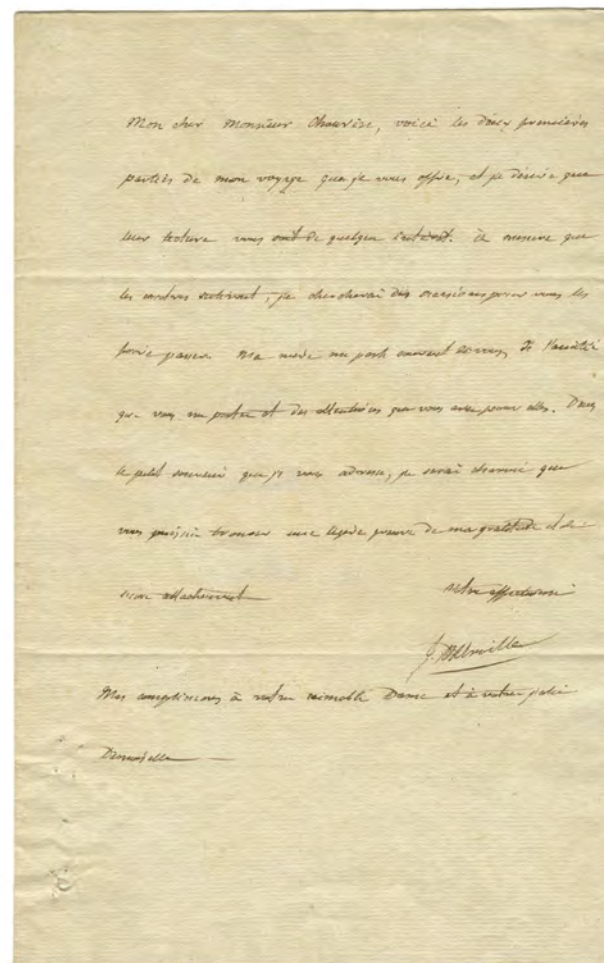 Mon cher Monsieur Chauvin, voici les deux premières
parties de mon voyage que je vous offre, et je désire que
leur lecture vous soit de quelque intérêt. à mesure que
les autres suivront, je chercherai des occasions pour vous les
faire passer. Ma mère me parle souvent de vous, de l'amitié
que vous me portez et des attentions que vous avez pour elle. Dans
le petit souvenir que je vous adresse, je serai charmé que
vous puissiez trouver une légère preuve de ma gratitude et de
mon attachement
votre affectionné
J. d'Urville
Mes complimens à votre aimable Dame et à votre jolie
Demoiselle